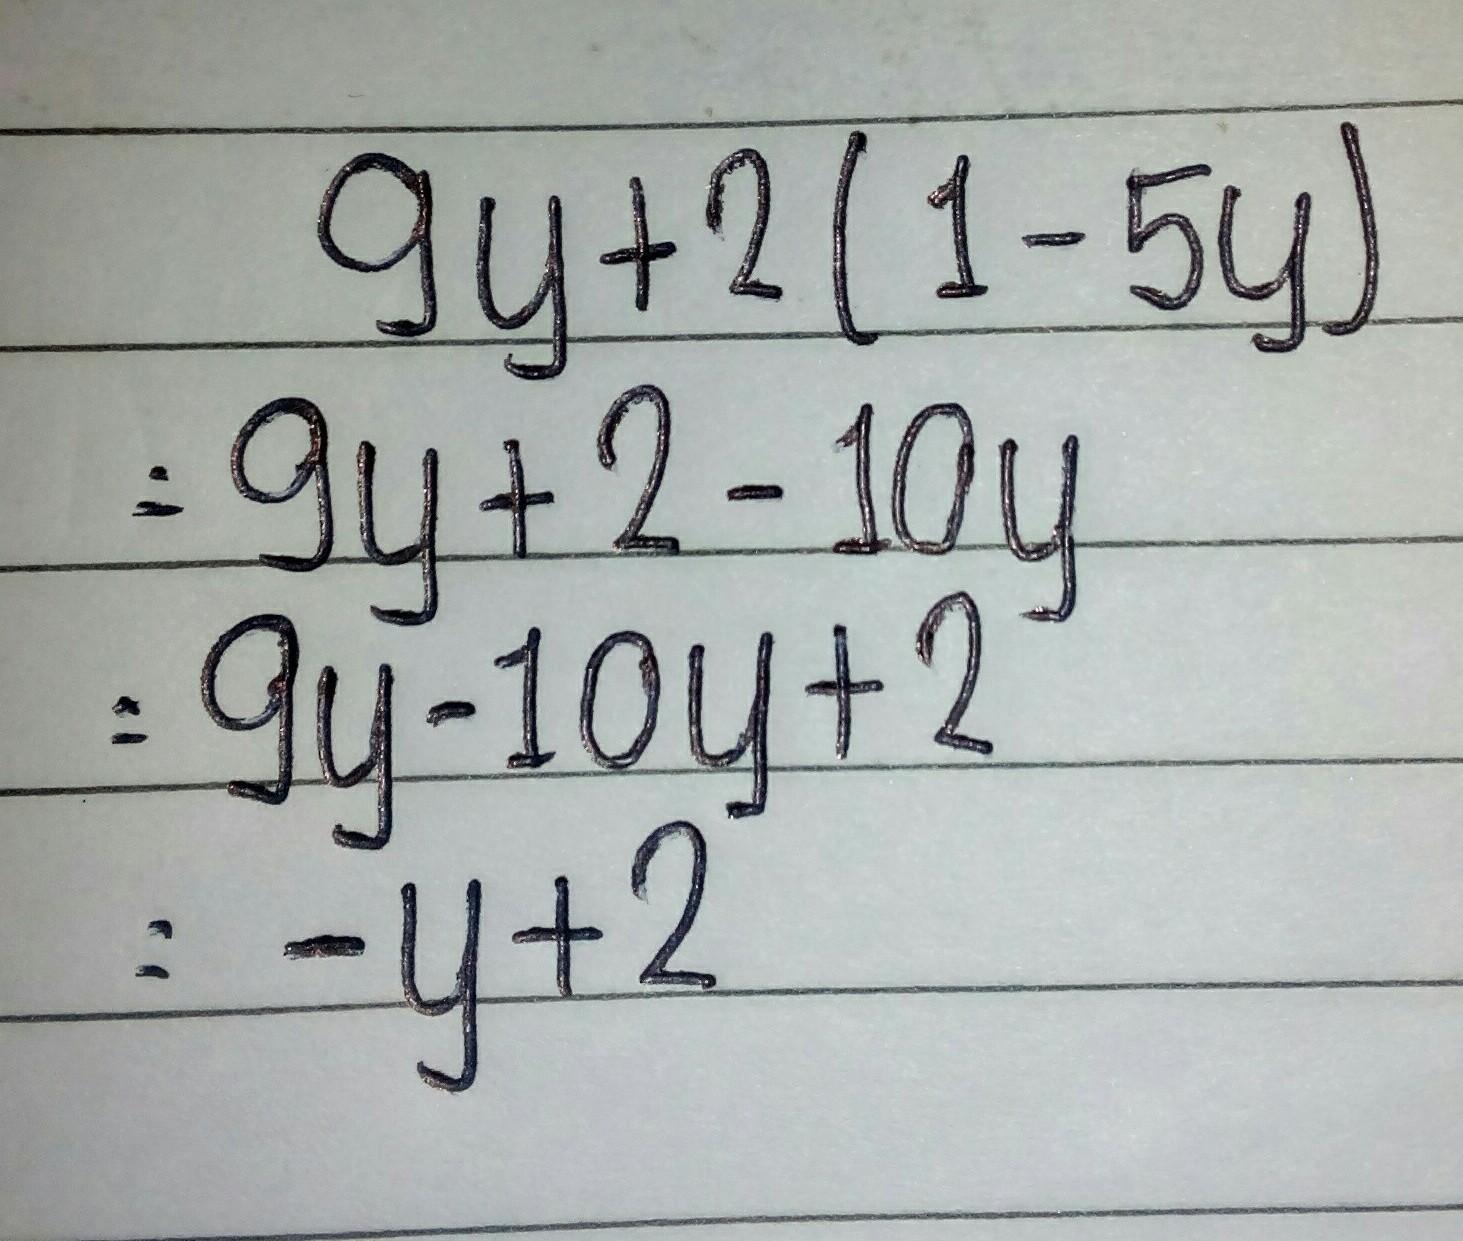 9y+2(1-5y)
= 9y+2-10y
= 9y-10y+2
= -y+2